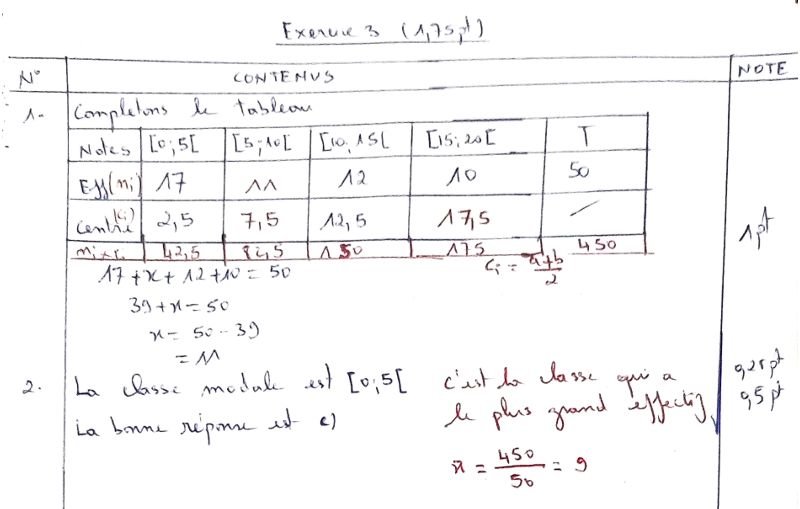 Exercice 3 (1,75pt)
N° CONTENUS NOTE
1- Completons le tableau
Notes [0;5[ [5;10[ [10;15[ [15;20[ T
Eff(ni) 17 11 12 10 50
Centre(ci) 2,5 7,5 12,5 17,5 /
42,5 82,5 150 175 450
1pt
17+x+12+10=50 ci = a+b/2
39+x=50
x= 50-39
= 11
2. La classe modale est [0;5[ c'est la classe qui a 0,25pt
La bonne réponse est c) le plus grand effectif 0,5pt
x̄ = 450/50 = 9